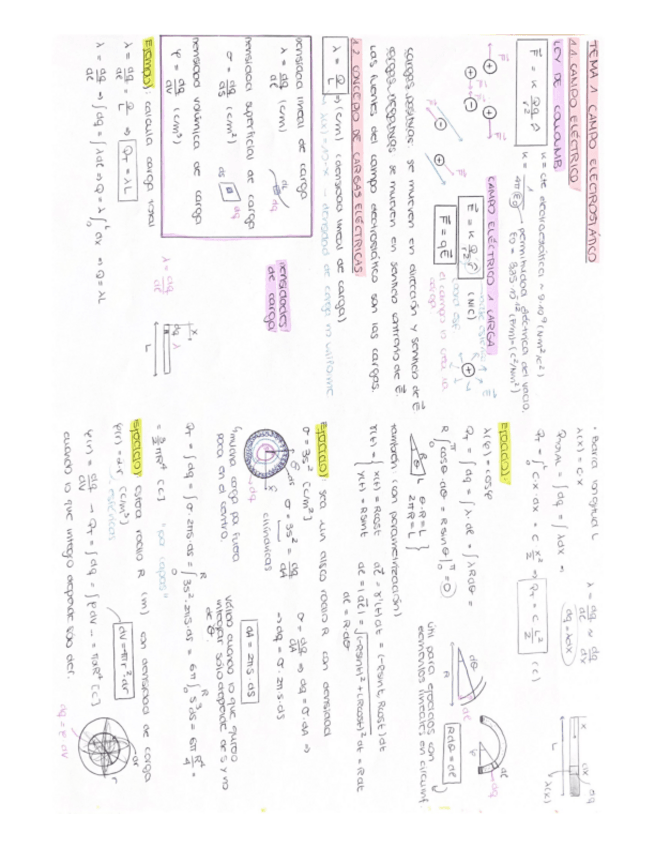 TEMA 1 CAMPO ELECTROSTÁTICO
1.1 CAMPO ELÉCTRICO
LEY DE COULOMB
F = K Qq/r² r̂
K = cte electrostática ~ 9·10⁹ (Nm²/C²)
K = 1/4πε₀ → permitividad eléctrica del vacío,
ε₀ = 8,85·10⁻¹² (F/m) = (C²/Nm²)
CAMPO ELÉCTRICO 1 CARGA
E = K Q/r² r̂ (N/C)
F = qE
el campo lo crea la carga
cargas positivas: se mueven en dirección y sentido de E
cargas negativas: se mueven en sentido contrario de E.
Las fuentes del campo electrostático son las cargas.
1.2 CONCEPTO DE CARGAS ELÉCTRICAS
λ = Q/L → (C/m) (densidad lineal de carga)
λ(x) = 10·x → densidad de carga no uniforme
densidad lineal de carga
λ = dq/dl (C/m)
densidad superficial de carga
σ = dq/dS (C/m²)
densidad volúmica de carga
ρ = dq/dV (C/m³)
densidades de carga
Ejemplo: calcula carga total
λ = dq/dl = Q/L ⇒ Q_T = λL
λ = dq/dl
λ = dq/dl ⇒ ∫dq = ∫λdl ⇒ Q = λ∫dx ⇒ Q = λL
• Barra longitud L
λ(x) = C·x
λ = dq/dl ≈ dq/dx
Q_TOTAL = ∫dq = ∫λdx ⇒
dq = λdx
Q_T = ∫Cx·dx = C x²/2 ⇒ Q_T = C L²/2 (C)
Ejercicio:
λ(θ) = cosθ
Q_T = ∫dq = ∫λ·dl = ∫λRdθ =
R∫cosθ·dθ = R senθ = 0
Rdθ = dl
θ·R = L
2πR = L
útil para ejercicios con elementos lineales en circunf.
también con parametrización)
r(t) = { x(t) = Rcost
y(t) = Rsent
dl = r'(t)dt = (-Rsent, Rcost)dt
dl = |dl| = √(-Rsent)² + (Rcost)² dt = Rdt
dl = Rdθ
Ejercicio: sea un disco radio R con densidad
σ = 3s² (C/m²)
σ = 3s² = dq/dA
σ = dq/dA ⇒ dq = σ·dA ⇒
⇒ dq = σ·2πs·ds
cilíndricas
dA = 2πs ds
(mucha carga pa fuera
poca en el centro.
Válido cuando lo que quiero
integrar sólo depende de s y no
de θ.
Q_T = ∫dq = ∫σ·2πs·ds = ∫3s²·2πs·ds = 6π∫s³ds = 6π R⁴/4 =
= 3/2 πR⁴ [C]
"por capas"
Ejercicio: esfera radio R (m) con densidad de carga
ρ(r) = dr (C/m³)
esféricas
ρ(r) = dq/dV → Q_T = ∫dq = ∫ρdV
cuando lo que integro depende sólo de r.